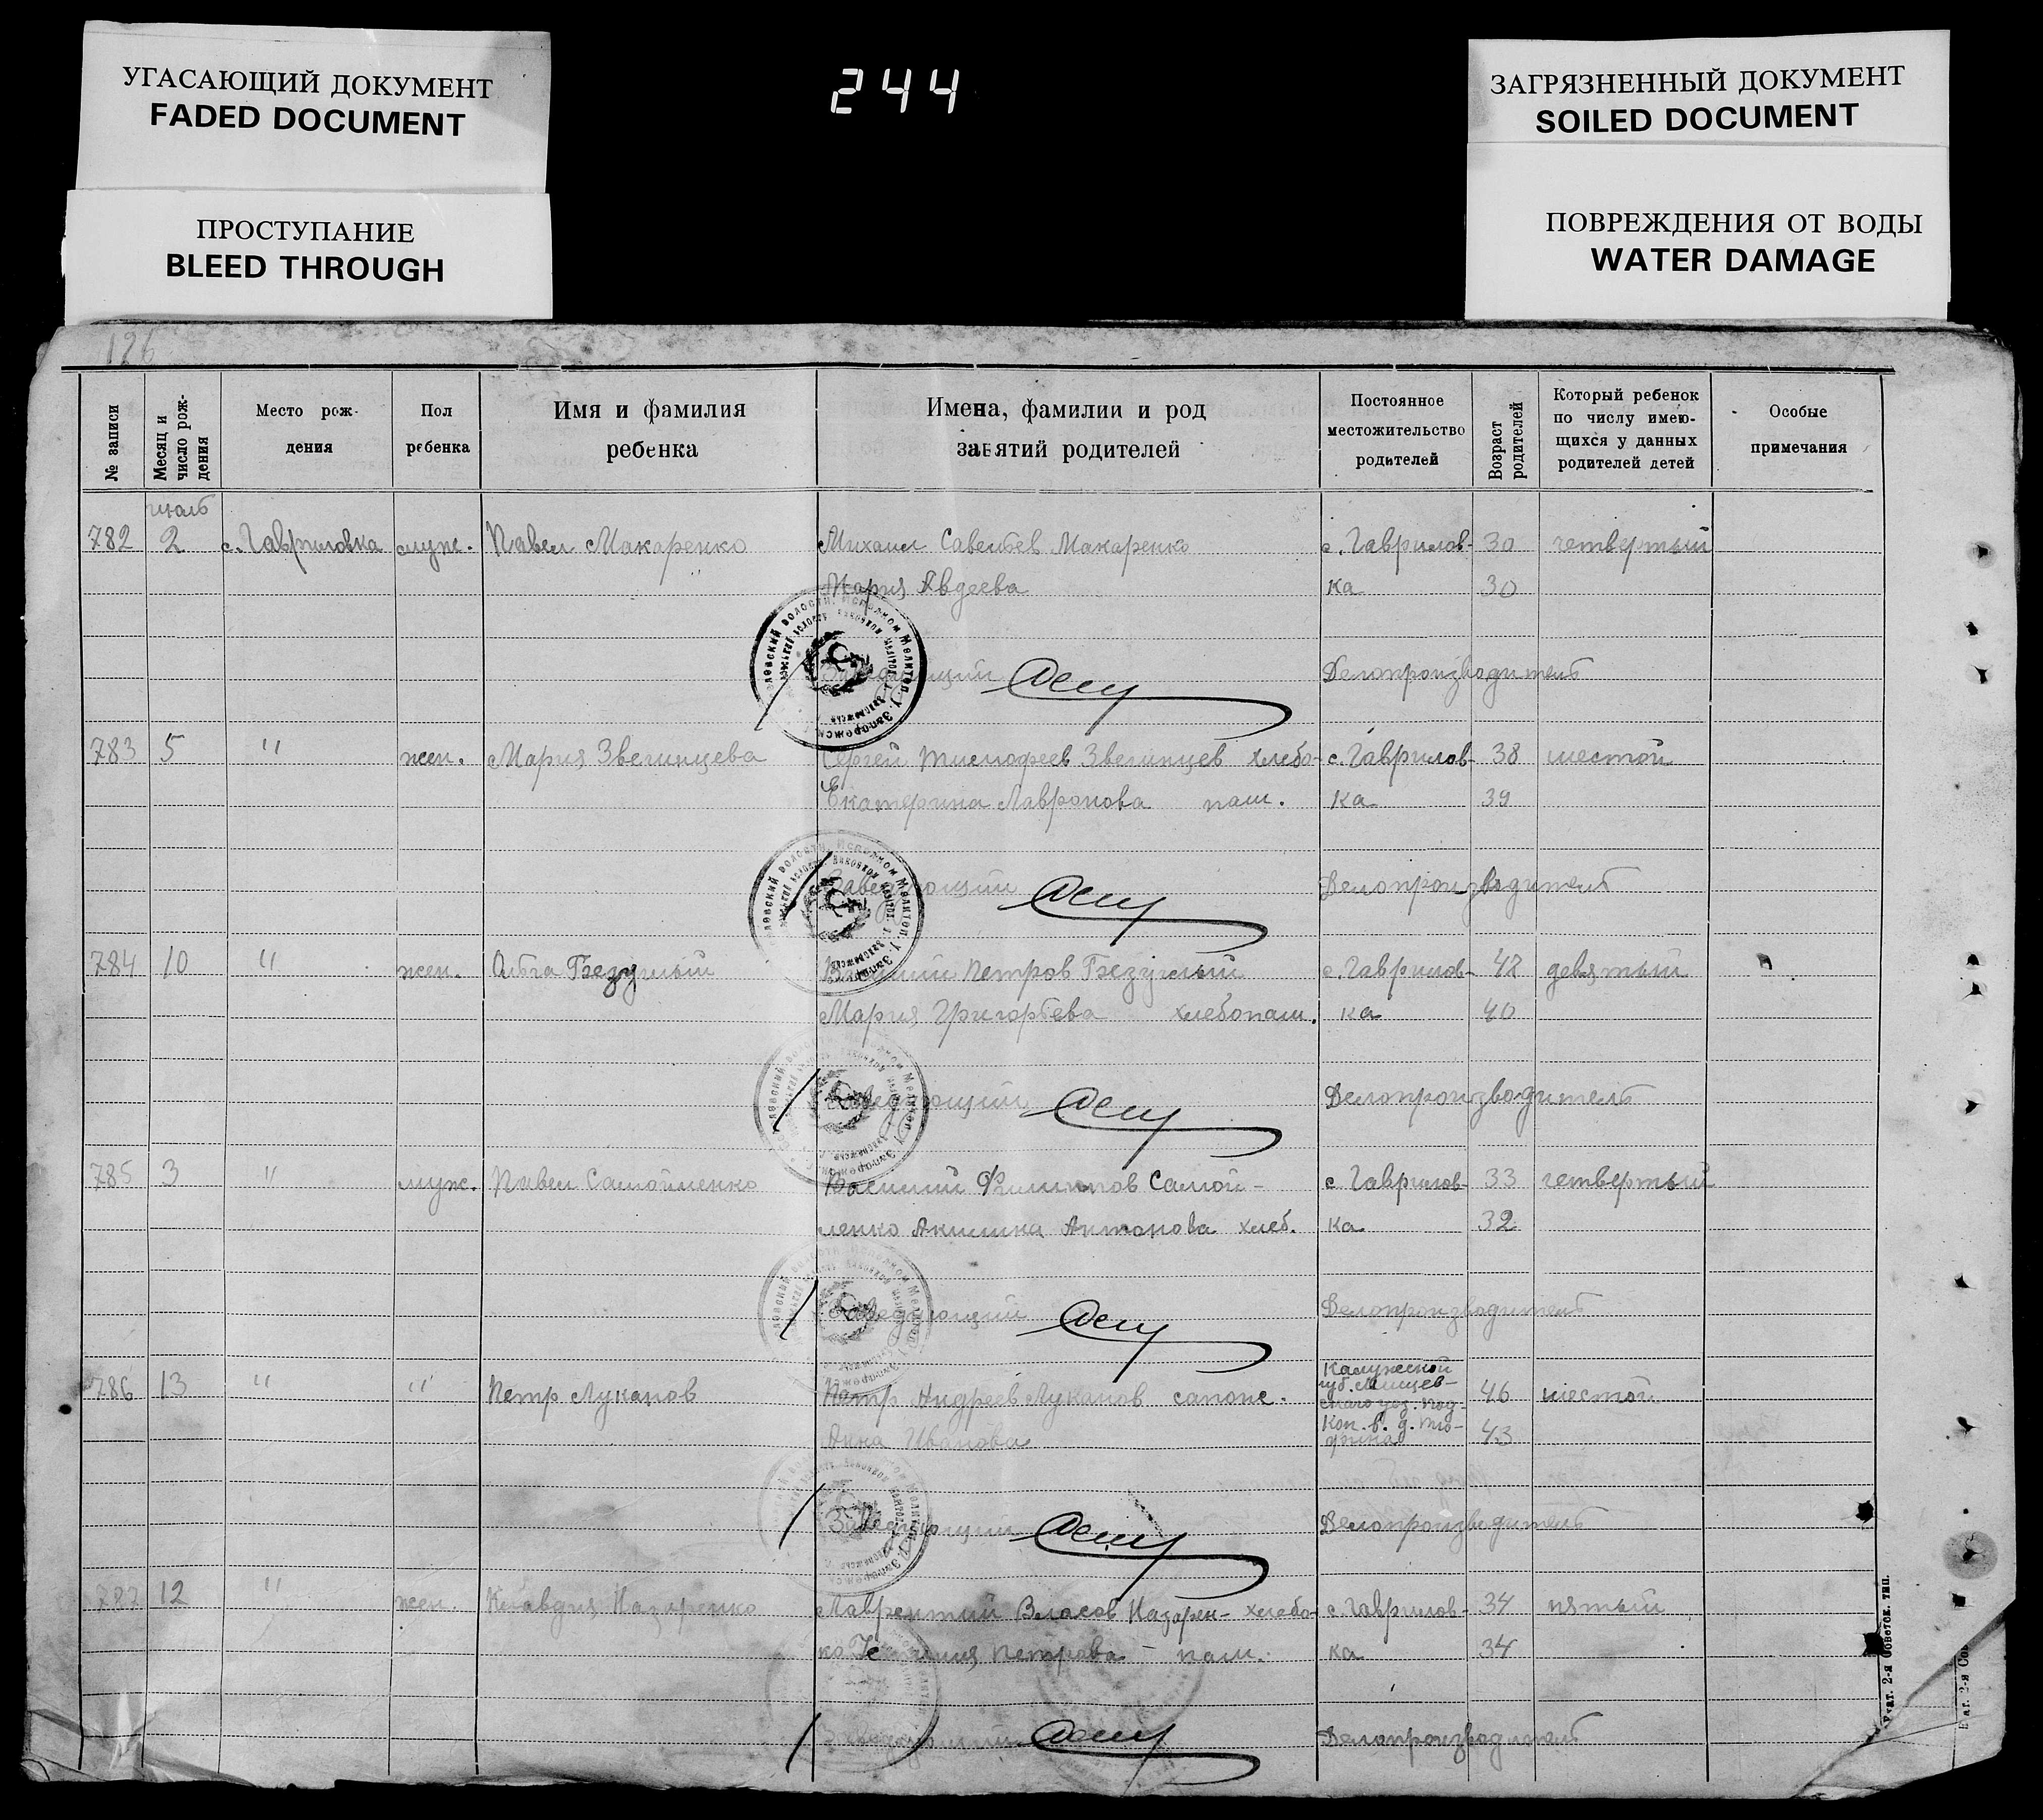 УГАСАЮЩИЙ ДОКУМЕНТ
FADED DOCUMENT
ПРОСТУПАНИЕ
BLEED THROUGH
244
ЗАГРЯЗНЕННЫЙ ДОКУМЕНТ
SOILED DOCUMENT
ПОВРЕЖДЕНИЯ ОТ ВОДЫ
WATER DAMAGE
126
№ записи
Месяц и число рож-дения
Место рож-дения
Пол ребенка
Имя и фамилия ребенка
Имена, фамилии и род занятий родителей
Постоянное местожительство родителей
Возраст родителей
Который ребенок по числу имею-щихся у данных родителей детей
Особые примечания
июль
782 2 с. Гавриловка муж. Павел Макаренко Михаил Савельев Макаренко с. Гаврилов- 30 четвертый
Мария Авдеева ка 30
Заведующий Делопроизводитель
783 5 " жен. Мария Звегинцева Сергей Тимофеев Звегинцев хлебо- с. Гаврилов- 38 шестой
Екатерина Лавронова паш. ка 39
Заведующий Делопроизводитель
784 10 " жен. Ольга Безуглый Василий Петров Безуглый с. Гаврилов- 42 девятый
Мария Григорьева хлебопаш. ка 40
Заведующий Делопроизводитель
785 3 " муж. Павел Самойленко Василий Филиппов Самой- с. Гаврилов- 33 четвертый
ленко Акилина Антонова хлеб. ка 32
Заведующий Делопроизводитель
786 13 " " Петр Луканов Петр Андреев Луканов сапож. Калужской губ. 46 шестой
Анна Иванова 43
Заведующий Делопроизводитель
787 12 " жен. Клавдия Назаренко Лаврентий Власов Назарен- хлебо- с. Гаврилов- 34 пятый
ко Петрова - паш. ка 34
Заведующий Делопроизводитель
2-я Советск. тип.